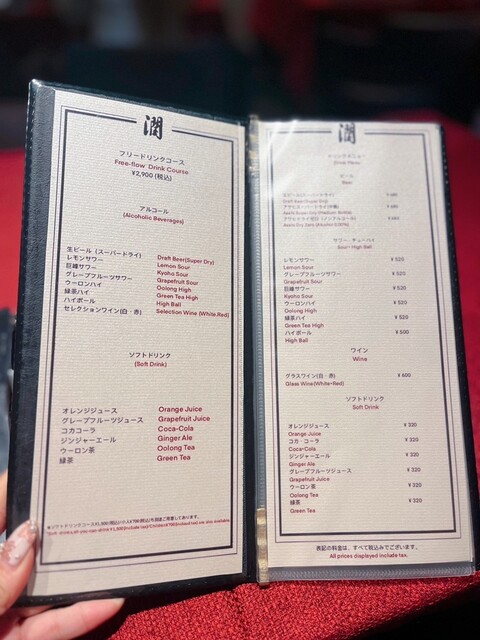 潤
フリードリンクコース
Free-flow Drink Course
¥2,900 (税込)
アルコール
(Alcoholic Beverages)
生ビール (スーパードライ) Draft Beer(Super Dry)
レモンサワー Lemon Sour
巨峰サワー Kyoho Sour
グレープフルーツサワー Grapefruit Sour
ウーロンハイ Oolong High
緑茶ハイ Green Tea High
ハイボール High Ball
セレクションワイン(白・赤) Selection Wine (White.Red)
ソフトドリンク
(Soft Drink)
オレンジジュース Orange Juice
グレープフルーツジュース Grapefruit Juice
コカコーラ Coca-Cola
ジンジャーエール Ginger Ale
ウーロン茶 Oolong Tea
緑茶 Green Tea
潤
ドリンクメニュー
Drink Menu
ビール
Beer
生ビール(スーパードライ)
Draft Beer(Super Dry)
アサヒスーパードライ(中瓶)
Asahi Super Dry (Medium Bottle)
アサヒドライゼロ (ノンアルコール)
Asahi Dry Zero
サワー・チューハイ
Sour・High Ball
レモンサワー ¥ 520
Lemon Sour
グレープフルーツサワー ¥ 520
Grapefruit Sour
巨峰サワー ¥ 520
Kyoho Sour
ウーロンハイ ¥ 520
Oolong High
緑茶ハイ ¥ 520
Green Tea High
ハイボール ¥ 500
High Ball
ワイン
Wine
グラスワイン(白・赤) ¥ 600
Glass Wine(White・Red)
ソフトドリンク
Soft Drink
オレンジジュース ¥ 320
Orange Juice
コカ・コーラ ¥ 320
Coca-Cola
ジンジャーエール ¥ 320
Ginger Ale
グレープフルーツジュース ¥ 320
Grapefruit Juice
ウーロン茶 ¥ 320
Oolong Tea
緑茶 ¥ 320
Green Tea
表記の料金は、すべて税込みでございます。
All prices displayed include tax.